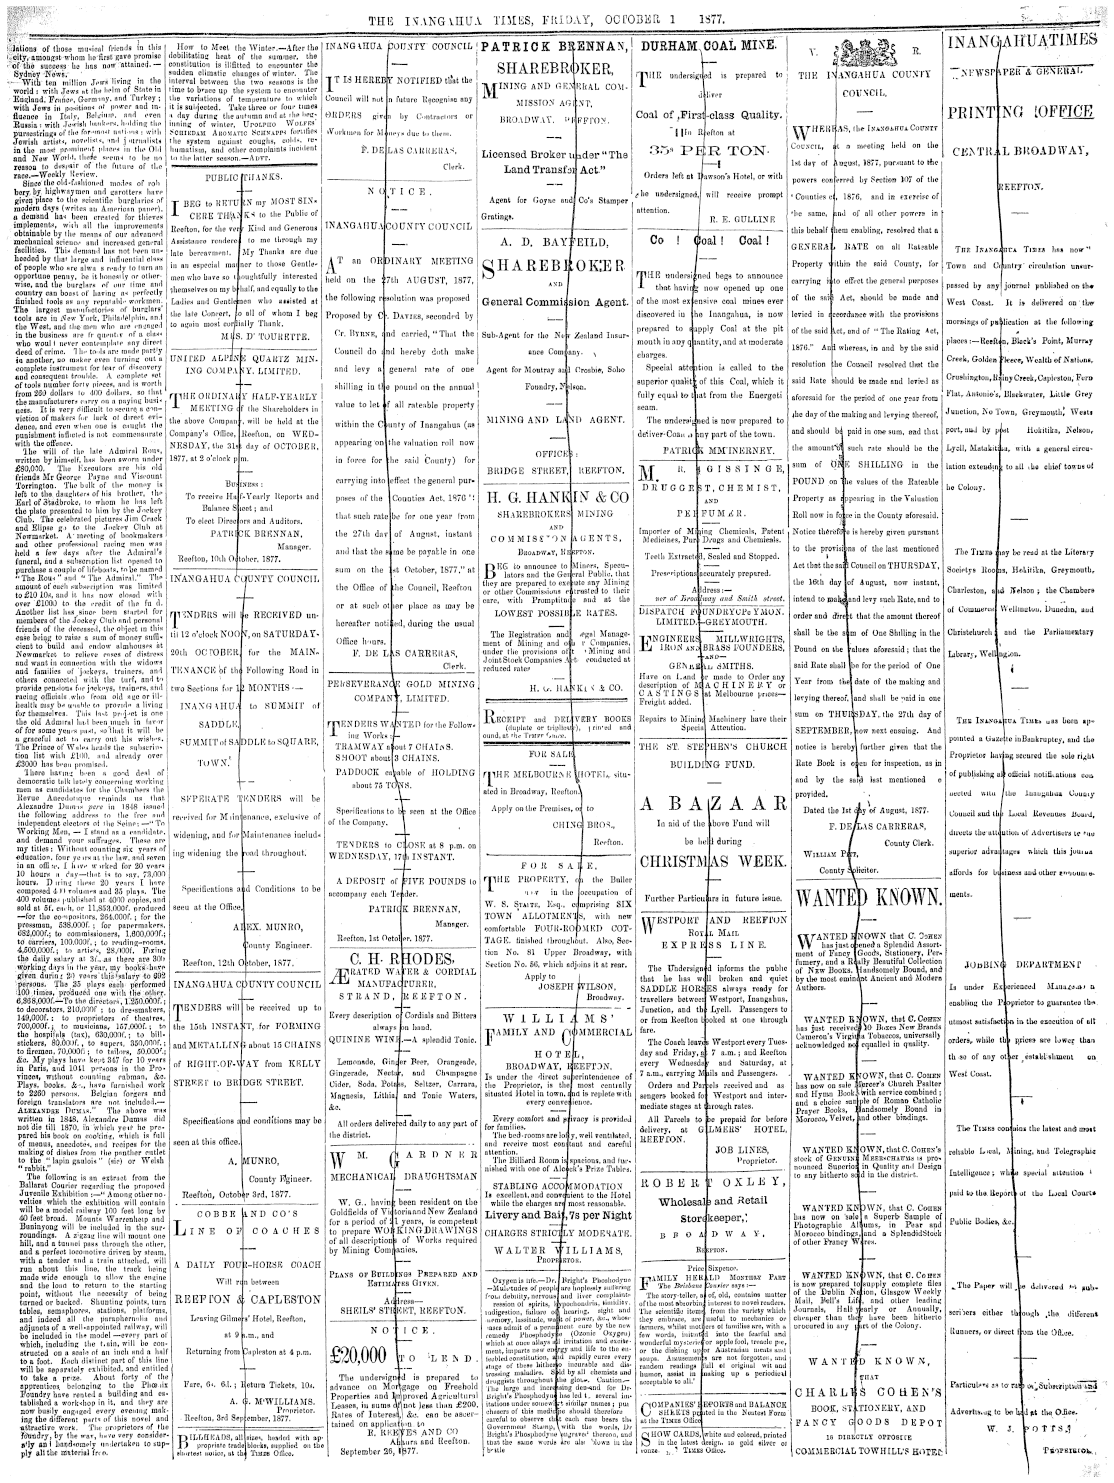 THE INANGAHUA TIMES, FRIDAY, OCTOBER 1 1877.
lations of those musical friends in this
city, amongst whom he first gave promise
of the success he has now attained. —
Sydney News.
With ten million Jews living in the
world: with Jews at the helm of State in
England, France, Germany, and Turkey;
with Jews in positions of power and in-
fluence in Italy, Belgium, and even
Russia: with Jewish bankers, holding the
pursestrings of the foremost nations: with
Jewish artists, novelists, and journalists
in the most prominent places in the Old
and New World, there seems to be no
reason to despair of the future of the
race.—Weekly Review.
Since the old-fashioned modes of rob
bery by highwaymen and garotters have
given place to the scientific burglaries of
modern days (writes an American paper),
a demand has been created for thieves
implements, with all the improvements
obtainable by the means of our advanced
mechanical science and increased general
facilities. This demand has not been un-
heeded by that large and influential class
of people who are always ready to turn an
opportune penny, be it honestly or other-
wise, and the burglars of our time and
country can boast of having as perfectly
finished tools as any reputable workmen.
The largest manufactories of burglars'
tools are in New York, Philadelphia, and
the West, and the men who are engaged
in the business are frequenter of a class
who would never contemplate any direct
deed of crime. The tools are made partly
in another, no maker even turning out a
complete instrument for fear of discovery
and consequent trouble. A complete set
of tools number forty pieces, and is worth
from 260 dollars to 400 dollars, so that
the manufacturers carry on a paying busi-
ness. It is very difficult to secure a con-
viction of makers for lack of direct evi-
dence, and even when one is caught the
punishment inflicted is not commensurate
with the offence.
The will of the late Admiral Rous,
written by himself, has been sworn under
£80,000. The Executors are his old
friends Mr George Payne and Viscount
Torrington. The bulk of the money is
left to the daughters of his brother, the
Earl of Stadbroke, to whom he has left
the plate presented to him by the Jockey
Club. The celebrated pictures Jim Crack
and Elipse go to the Jockey Club at
Newmarket. A meeting of bookmakers
and other professional racing men was
held a few days after the Admiral's
funeral, and a subscription list opened to
purchase a couple of lifeboats, to be named
"The Rous" and "The Admiral." The
amount of each subscription was limited
to £10 10s, and it has now closed with
over £1000 to the credit of the fund.
Another list has since been started for
members of the Jockey Club and personal
friends of the deceased, the object in this
case being to raise a sum of money suffi-
cient to build and endow almhouses at
Newmarket to relieve cases of distress
and want in connection with the widows
and families of jockeys, trainers, and
others connected with the turf, and to
provide pensions for jockeys, trainers, and
racing officials who from old age or ill-
health may be unable to provide a living
for themselves. This last project is one
the old Admiral had been much in favor
of for some years past, so that it will be
a graceful act to carry out his wishes.
The Prince of Wales heads the subscrip-
tion list with £100, and already over
£3000 has been promised.
There having been a good deal of
democratic talk lately concerning working
men as candidates for the Chambers the
Revue Anecdotique reminds us that
Alexandre Dumas pere in 1848 issued
the following address to the free and
independent electors of the Seine:—"To
Working Men, — I stand as a candidate,
and demand your suffrages. These are
my titles: Without counting six years of
education, four years at the law, and seven
in an office, I have worked for 20 years
10 hours a day—that is to say, 73,000
hours. During these 20 years I have
composed 400 volumes and 35 plays. The
400 volumes published at 4000 copies, and
sold at 5f. each, or 11,853,000f. produced
—for the compositors, 264,000f.; for the
pressman, 538,000f.; for papermakers,
682,000f.; to commissioners, 1,600,000f.;
to carriers, 100,000f.; to reading-rooms,
4,500,000f.; to artists, 28,000f. Fixing
the daily salary at 3f. as there are 300
working days in the year, my books have
given during 20 years this salary to 692
persons. The 35 plays each performed
100 times, produced one with the other,
6,368,000f.—To the directors, 1,250,000f.;
to decorators, 210,000f; to dressmakers,
149,000f.; to proprietors of theatres,
700,000f.; to musicians, 157,000f.; to
the hospitals (tax), 630,000f.; to bill-
stickers, 80,000f.; to supers, 350,000f.;
to fireman, 70,000f; to tailors, 50,000f.;
&c. My plays have kept 347 for 10 years
in Paris, and 1041 persons in the Pro-
vinces, without counting cabman, &c.
Plays, books, &c., have furnished work
to 2260 persons. Belgian forgers and
foreign translators are not included.—
ALEXANDRE DUMAS." The above was
written in 1848, Alexandre Dumas did
not die till 1870, in which year he pre-
pared his book on cooking, which is full
of menus, anecdotes, and recipes for the
making of dishes from the panther cutlet
to the "lapin gaulois" (sic) or Welsh
"rabbit."
The following is an extract from the
Ballarat Courier regarding the proposed
Juvenile Exhibition:—"Among other no-
velties which the exhibition will contain
will be a model railway 100 feet long by
40 feet broad. Mounts Warrenheep and
Buninyong will be included in the sur-
roundings. A zigzag line will mount one
hill, and a tunnel pass through the other,
and a perfect locomotive driven by steam,
with a tender and a train attached, will
run about this line, the track being
made wide enough to allow the engine
and the load to return to the starting
point, without the necessity of being
turned or backed. Shunting points, turn
tables, semaphores, stations, platforms,
and indeed all the paraphernalia and
adjuncts of a well-appointed railway, will
be included in the model—every part of
which, including the train, will be con-
structed on a scale of an inch and a half
to a foot. Each distinct part of this line
will be separately exhibited, and entitled
to take a prize. About forty of the
apprentices belonging to the Phœnix
Foundry have rented a building and es-
tablished a workshop in it, and they are
now busily engaged every evening mak-
ing the different parts of this novel and
attractive work. The proprietors of the
foundry, by the way, have very consider-
ately and handsomely undertaken to sup-
ply all the material free.
How to Meet the Winter.—After the
debilitating heat of the summer, the
constitution is illfitted to encounter the
sudden climatic changes of winter. The
interval between the two seasons is the
time to brace up the system to encounter
the variations of temperature to which
it is subjected. Take three or four times
a day during the autumn and at the beg-
inning of winter, UDOLPHO WOLFES'
SCHIEDAM AROMATIC SCHNAPPS fortifies
the system against coughs, colds, rheu-
matism, and other complaints incident
to the latter season.—ADVT.
PUBLIC THANKS.
I BEG to RETURN my MOST SIN-
CERE THANKS to the Public of
Reefton, for the very Kind and Generous
Assistance rendered to me through my
late bereavement. My Thanks are due
in an especial manner to those Gentle-
men who have so thoughtfully interested
themselves on my behalf, and equally to the
Ladies and Gentlemen who assisted at
the late Concert, to all of whom I beg
to again most cordially Thank.
MRS. D'TOURETTE.
UNITED ALPINE QUARTZ MIN-
ING COMPANY. LIMITED.
THE ORDINARY HALF-YEARLY
MEETING of the Shareholders in
the above Company, will be held at the
Company's Office, Reefton, on WED-
NESDAY, the 31st day of OCTOBER,
1877, at 2 o'clock p m.
BUSINESS:
To receive Half-Yearly Reports and
Balance Sheet; and
To elect Directors and Auditors.
PATRICK BRENNAN,
Manager.
Reefton, 10th October, 1877.
INANGAHUA COUNTY COUNCIL
TENDERS will be RECEIVED un-
til 12 o'clock NOON, on SATURDAY-
20th OCTOBER, for the MAIN-
TENANCE of the Following Road in
two Sections for 12 MONTHS:—
INANGAHUA to SUMMIT of
SADDLE,
SUMMIT of SADDLE to SQUARE,
TOWN.
SEPERATE TENDERS will be
received for Maintenance, exclusive of
widening, and for Maintenance includ-
ing widening the road throughout.
Specifications and Conditions to be
seen at the Office.
ALEX. MUNRO,
County Engineer.
Reefton, 12th October, 1877.
INANGAHUA COUNTY COUNCIL
TENDERS will be received up to
the 15th INSTANT, for FORMING
and METALLING about 15 CHAINS
of RIGHT-OF-WAY from KELLY
STREET to BRIDGE STREET.
Specifications and conditions may be
seen at this office.
A. MUNRO,
County Engineer.
Reefton, October 3rd, 1877.
COBBE AND CO'S
LINE OF COACHES
A DAILY FOUR-HORSE COACH
Will run between
REEFTON & CAPLESTON
Leaving Gilmers' Hotel, Reefton,
at 9 a.m., and
Returning from Capleston at 4 p.m.
Fare, 6s. 6d.; Return Tickets, 10s.
A. G. M'WILLIAMS.
Proprietor.
Reefton, 3rd September, 1877.
BILLHEADS, all sizes, headed with ap-
propriate trade blocks, supplied on the
shortest notice, at the TIMES Office.
INANGAHUA COUNTY COUNCIL
IT IS HEREBY NOTIFIED that the
Council will not in future Recognise any
ORDERS given by Contractors or
Workmen for Moneys due to them.
F. DE LAS CARRERAS,
Clerk.
NOTICE.
INANGAHUA COUNTY COUNCIL
AT an ORDINARY MEETING
held on the 27th AUGUST, 1877,
the following resolution was proposed
Proposed by Cr. DAVIES, seconded by
Cr. BYRNE, and carried, "That the
Council do and hereby doth make
and levy a general rate of one
shilling in the pound on the annual
value to let of all rateable property
within the County of Inangahua (as
appearing on the valuation roll now
in force for the said County) for
carrying into effect the general pur-
poses of the Counties Act, 1876':
that such rate be for one year from
the 27th day of August, instant
and that the same be payable in one
sum on the 1st October, 1877," at
the Office of the Council, Reefton
or at such other place as may be
hereafter notified, during the usual
Office hours.
F. DE LAS CARRERAS,
Clerk.
PERSEVERANCE GOLD MINING
COMPANY, LIMITED.
TENDERS WANTED for the Follow-
ing Works:—
TRAMWAY about 7 CHAINS.
SHOOT about 3 CHAINS.
PADDOCK capable of HOLDING
about 75 TONS.
Specifications to be seen at the Office
of the Company.
TENDERS to CLOSE at 8 p.m. on
WEDNESDAY, 17th INSTANT.
A DEPOSIT of FIVE POUNDS to
accompany each Tender.
PATRICK BRENNAN,
Manager.
Reefton, 1st October, 1877.
C. H. RHODES,
ÆRATED WATER & CORDIAL
MANUFACTURER,
STRAND, REEFTON.
Every description of Cordials and Bitters
always on hand.
QUININE WINE.—A splendid Tonic.
Lemonade, Ginger Beer, Orangeade,
Gingerade, Nectar, and Champagne
Cider, Soda, Potass, Seltzer, Carrara,
Magnesia, Lithia, and Tonic Waters,
&c.
All orders delivered daily to any part of
the district.
WM. GARDNER
MECHANICAL DRAUGHTSMAN
W. G., having been resident on the
Goldfields of Victoria and New Zealand
for a period of 21 years, is competent
to prepare WORKING DRAWINGS
of all descriptions of Works required
by Mining Companies.
PLANS OF BUILDINGS PREPARED AND
ESTIMATES GIVEN.
Address—
SHEILS' STREET, REEFTON.
NOTICE.
£20,000 TO LEND.
The undersigned is prepared to
advance on Mortgage on Freehold
Properties and Improved Agricultural
Leases, in sums of not less than £200.
Rates of Interest, &c. can be ascer-
tained on application to
R. REEVES AND CO
Ahaura and Reefton.
September 26, 1877.
PATRICK BRENNAN,
SHAREBROKER,
MINING AND GENERAL COM-
MISSION AGENT,
BROADWAY, REEFTON.
Licensed Broker under "The
Land Transfer Act."
Agent for Goyne and Co's Stamper
Gratings.
A. D. BAYFEILD,
SHAREBROKER
AND
General Commission Agent.
Sub-Agent for the New Zealand Insur-
ance Company.
Agent for Moutray and Crosbie, Soho
Foundry, Nelson.
MINING AND LAND AGENT.
OFFICES:
BRIDGE STREET, REEFTON.
H. G. HANKIN & CO
SHAREBROKERS MINING
AND
COMMISSION AGENTS,
BROADWAY, REEFTON.
BEG to announce to Miners, Specu-
lators and the General Public, that
they are prepared to execute any Mining
or other Commissions entrusted to their
care, with Promptitude and at the
LOWEST POSSIBLE RATES.
The Registration and Legal Manage-
ment of Mining and other Companies,
under the provisions of the Mining and
Joint Stock Companies Act conducted at
reduced rates
H. G. HANKIN & CO.
RECEIPT and DELIVERY BOOKS
(duplate or triplicate), printed and
bound, at the TIMES Office.
FOR SALE
THE MELBOURNE HOTEL, situ-
ated in Broadway, Reefton.
Apply on the Premises, or to
CHING BROS.,
Reefton.
FOR SALE,
THE PROPERTY, on the Buller
now in the occupation of
W. S. STAITE, Esq., comprising SIX
TOWN ALLOTMENTS, with new
comfortable FOUR-ROOMED COT-
TAGE, finished throughout. Also, Sec-
tion No. 81 Upper Broadway, with
Section No. 56, which adjoins it at rear.
Apply to
JOSEPH WILSON,
Broadway.
WILLIAMS'
FAMILY AND COMMERCIAL
HOTEL,
BROADWAY, REEFTON.
Is under the direct superintendence of
the Proprietor, is the most centrally
situated Hotel in town, and is replete with
every convenience.
Every comfort and privacy is provided
for families.
The bed-rooms are lofty, well ventilated,
and receive most constant and careful
attention.
The Billiard Room is spacious, and fur-
nished with one of Alcock's Prize Tables.
STABLING ACCOMMODATION
Is excellent, and convenient to the Hotel
while the charges are most reasonable.
Livery and Bait, 7s per Night
CHARGES STRICTLY MODERATE.
WALTER WILLIAMS,
PROPRIETOR.
Oxygen is life.—Dr. Bright's Phosphodyne
—Multitudes of people are hoplessly suffering
from debility, nervous and liver complaints
DURHAM COAL MINE.
THE undersigned is prepared to
deliver
Coal of First-class Quality.
In Reefton at
35s PER TON.
Orders left at Dawson's Hotel, or with
the undersigned, will receive prompt
attention.
R. E. GULLINE
Co ! Coal! Coal!
THE undersigned begs to announce
that having now opened up one
of the most extensive coal mines ever
discovered in the Inangahua, is now
prepared to supply Coal at the pit
mouth in any quantity, and at moderate
charges.
Special attention is called to the
superior quality of this Coal, which it
fully equal to that from the Energeti
seam.
The undersigned is now prepared to
deliver Coal to any part of the town.
PATRICK MMINERNEY.
M. R. GISSINGE,
DRUGGEST, CHEMIST,
AND
PERFUMER.
Importer of Mining Chemicals, Patent
Medicines, Pure Drugs and Chemicals.
Teeth Extracted, Scaled and Stopped.
Prescriptions accurately prepared.
Address:—
ner of Broadway and Smith street.
DISPATCH FOUNDRY COMPANY
LIMITED.—GREYMOUTH.
ENGINEERS MILLWRIGHTS,
IRON AND BRASS FOUNDERS,
—AND—
GENERAL SMITHS.
Have on Land or made to Order any
description of MACHINERY or
CASTINGS at Melbourne prices—
Freight added.
Repairs to Mining Machinery have their
Special Attention.
THE ST. STEPHEN'S CHURCH
BUILDING FUND.
A BAZAAR
In aid of the above Fund will
be held during
CHRISTMAS WEEK.
Further Particulars in future issue.
WESTPORT AND REEFTON
ROYAL MAIL
EXPRESS LINE.
The Undersigned informs the public
that he has well broken and quiet
SADDLE HORSES always ready for
travellers between Westport, Inangahua,
Junction, and the Lyell. Passengers to
or from Reefton booked at one through
fare.
The Coach leaves Westport every Tues-
day and Friday, at 7 a.m.; and Reefton
every Wednesday and Saturday, at
7 a.m., carrying Mails and Passengers.
Orders and Parcels received and as
sengers booked for Westport and inter-
mediate stages at through rates.
All Parcels to be prepaid for before
delivery, at GILMERS' HOTEL,
REEFTON.
JOB LINES,
Proprietor.
ROBERT OXLEY,
Wholesale and Retail
Storekeeper,
BROADWAY,
REEFTON.
Price Sixpence.
FAMILY HERALD MONTHLY PART
The Brisbane Courier says:—
The story-teller, as of old, contains matter
of the most absorbing interest to novel readers.
COMPANIES' REPORTS and BALANCE
SHEETS printed in the Neatest Form
at the TIMES Office.
SHOW CARDS, white and colored, printed
in the latest design, in gold silver or
bronze TIMES Office.
V. R.
THE INANGAHUA COUNTY
COUNCIL.
WHEREAS, the INANGAHUA COUNTY
COUNCIL, at a meeting held on the
1st day of August, 1877, pursuant to the
powers conferred by Section 107 of the
Counties ct, 1876, and in exercise of
the same, and of all other powers in
this behalf them enabling, resolved that a
GENERAL RATE on all Rateable
Property within the said County, for
carrying into effect the general purposes
of the said Act, should be made and
levied in accordance with the provisions
of the said Act, and of "The Rating Act,
1876." And whereas, in and by the said
resolution the Council resolved that the
said Rate should be made and levied as
aforesaid for the period of one year from
the day of the making and levying thereof,
and should be paid in one sum, and that
the amount of such rate should be the
sum of ONE SHILLING in the
POUND on the values of the Rateable
Property as appearing in the Valuation
Roll now in force in the County aforesaid.
Notice therefore is hereby given pursuant
to the provisions of the last mentioned
Act that the said Council on THURSDAY,
the 16th day of August, now instant,
intend to make and levy such Rate, and to
order and direct that the amount thereof
shall be the sum of One Shilling in the
Pound on the values aforesaid; that the
said Rate shall be for the period of One
Year from the date of the making and
levying thereof, and shall be paid in one
sum on THURSDAY, the 27th day of
SEPTEMBER, now next ensuing. And
notice is hereby further given that the
Rate Book is open for inspection, as in
and by the said last mentioned
provided.
Dated the 1st day of August, 1877.
F. DE LAS CARRERAS,
County Clerk.
WILLIAM PITT,
County Solicitor.
WANTED KNOWN.
WANTED KNOWN that C. COHEN
has just opened a Splendid Assort-
ment of Fancy Goods, Stationery, Per-
fumery, and a Really Beautiful Collection
of New Books, Handsomely Bound, and
by the most eminent Ancient and Modern
Authors.
WANTED KNOWN, that C. COHEN
has just received 20 Boxes New Brands
Cameron's Virginia Tobacco, universally
acknowledged not equalled in quality.
WANTED KNOWN, that C. COHEN
has now on sale Mercer's Church Psalter
and Hymn Book, with service combined;
and a choice sample of Roman Catholic
Prayer Books, Handsomely Bound in
Morocco, Velvet, and other bindings.
WANTED KNOWN, that C. COHEN'S
stock of GENUINE MEERSCHAUMS is pro-
nounced Superior in Quality and Design
to any hitherto sold in the district.
WANTED KNOWN, that C. COHEN
has now on sale a Superb Sample of
Photographic Albums, in Pear and
Morocco bindings, and a Splendid Stock
of other Fancy Wares.
WANTED KNOWN, that C. COHEN
is now prepared to supply complete files
of the Dublin Nation, Glasgow Weekly
Mail, Bell's Life, and other leading
Journals, Half yearly or Annually,
cheaper than they have been hitherto
procured in any part of the Colony.
WANTED KNOWN,
THAT
CHARLES COHEN'S
BOOK, STATIONERY, AND
FANCY GOODS DEPOT
IS DIRECTLY OPPOSITE
COMMERCIAL TOWHILL'S HOTEL
INANGAHUA TIMES
NEWSPAPER & GENERAL
PRINTING OFFICE
CENTRAL BROADWAY,
REEFTON.
THE INANGAHUA TIMES has now
Town and Country circulation unsur-
passed by any journal published on the
West Coast. It is delivered on the
mornings of publication at the following
places:—Reefton, Black's Point, Murray
Creek, Golden Fleece, Wealth of Nations,
Crushington, Rainy Creek, Capleston, Fern
Flat, Antonio's, Blackwater, Little Grey
Junction, No Town, Greymouth, Wests
port, and by post Hokitika, Nelson,
Lyell, Matakitika, with a general circu-
lation extending to all the chief towns of
he Colony.
The TIMES may be read at the Literary
Societys Rooms, Hokitika, Greymouth,
Charleston, and Nelson; the Chambers
of Commerce, Wellington, Dunedin, and
Christchurch and the Parliamentary
Library, Wellington.
THE INANGAHUA TIMES has been ap-
pointed a Gazette in Bankruptcy, and the
Proprietor having secured the sole right
of publishing all official notifications con
nected with the Inangahua County
Council and the Local Revenues Board,
directs the attention of Advertisers to the
superior advantages which this journa
affords for business and other announce-
ments.
JOBBING DEPARTMENT
Is under Experienced Management
enabling the Proprietor to guarantee the
utmost satisfaction in the execution of all
orders, while the prices are lower than
those of any other establishment on
West Coast.
The TIMES contains the latest and most
reliable Local, Mining, and Telegraphic
Intelligence; while special attention
paid to the Reports at the Local Courts
Public Bodies, &c.
The Paper will be delivered to sub-
scribers either through the different
Runners, or direct from the Office.
Particulars as to rates or Subscription and
Advertising to be had at the Office.
W. J. POTTS,
PROPRIETOR.